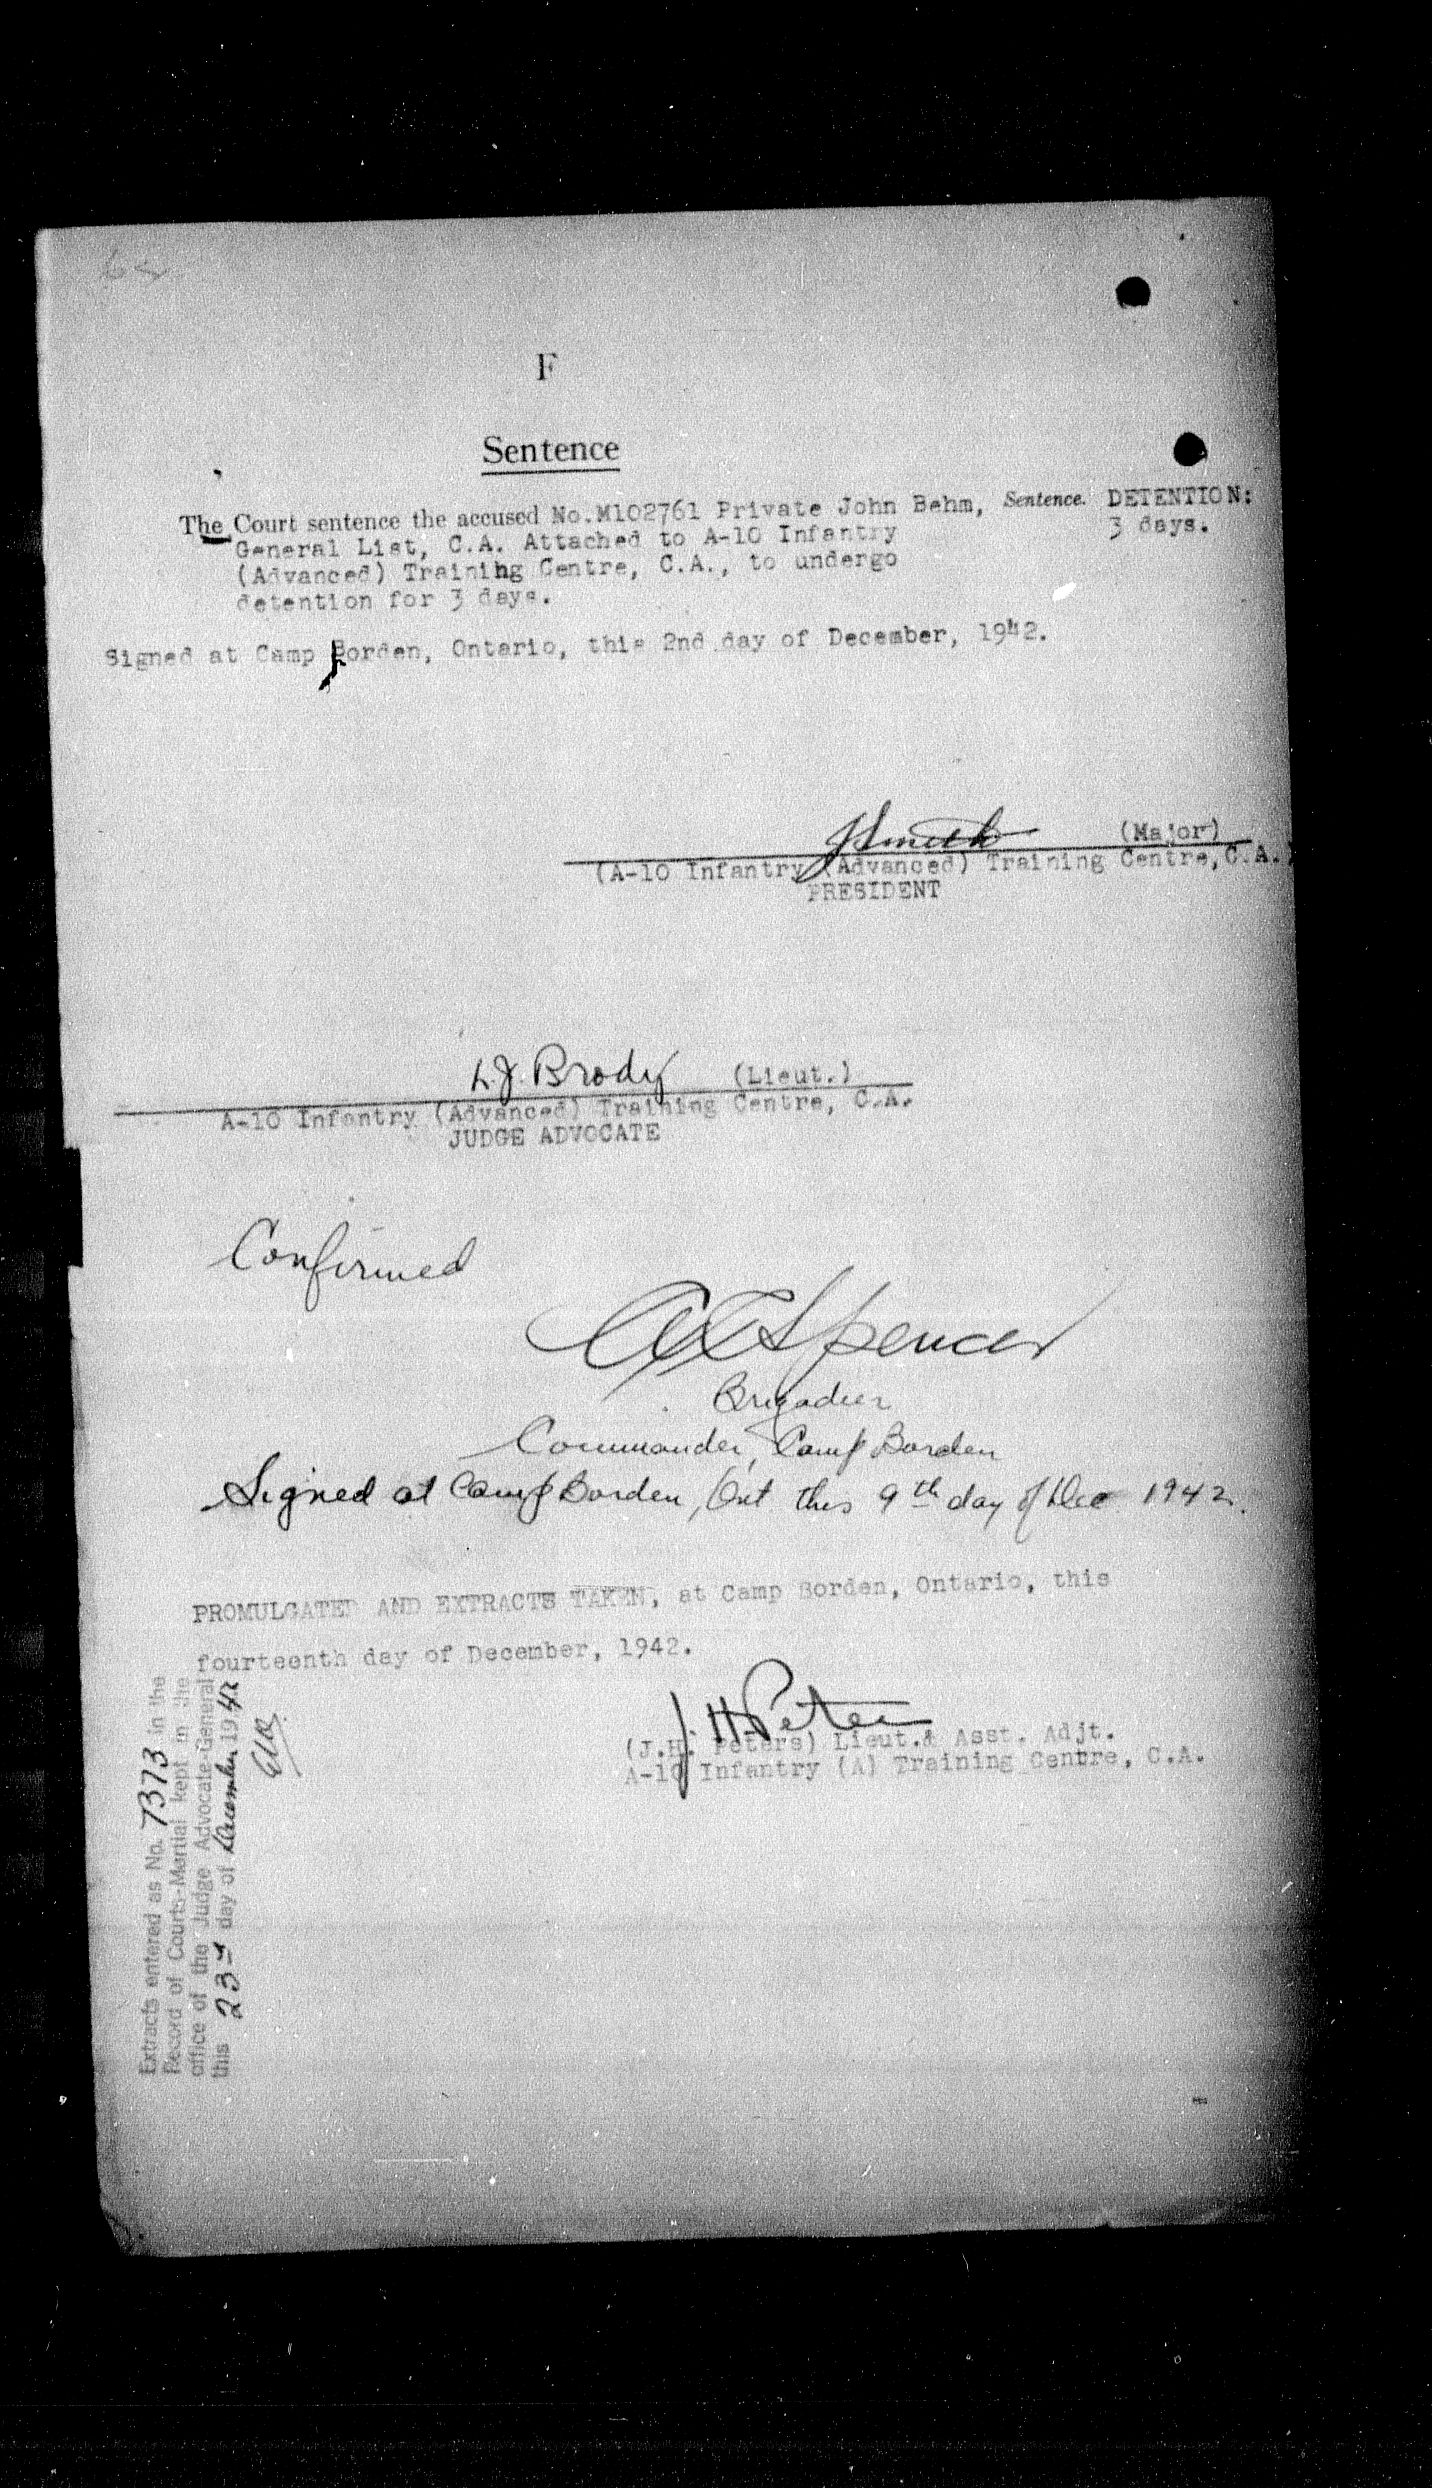 F
Sentence
The Court sentence the accused No.M102761 Private John Behm, Sentence. DETENTION:
General List, C.A. Attached to A-10 Infantry 3 days.
(Advanced) Training Centre, C.A., to undergo
detention for 3 days.
Signed at Camp Borden, Ontario, this 2nd day of December, 1942.
JSmith (Major)
(A-10 Infantry (Advanced) Training Centre, C.A.)
PRESIDENT
L.J. Brody (Lieut.)
A-10 Infantry (Advanced) Training Centre, C.A.
JUDGE ADVOCATE
Confirmed
Spencer
Brigadier
Commander, Camp Borden
Signed at Camp Borden, Ont this 9th day of Dec 1942.
PROMULGATED AND EXTRACTS TAKEN, at Camp Borden, Ontario, this
fourteenth day of December, 1942.
J. H. Peters
(J.H. Peters) Lieut.& Asst. Adjt.
A-10 Infantry (A) Training Centre, C.A.
Extracts entered as No. 7373 in the
Record of Courts-Martial kept in the
office of the Judge Advocate-General
this 23rd day of December 1942